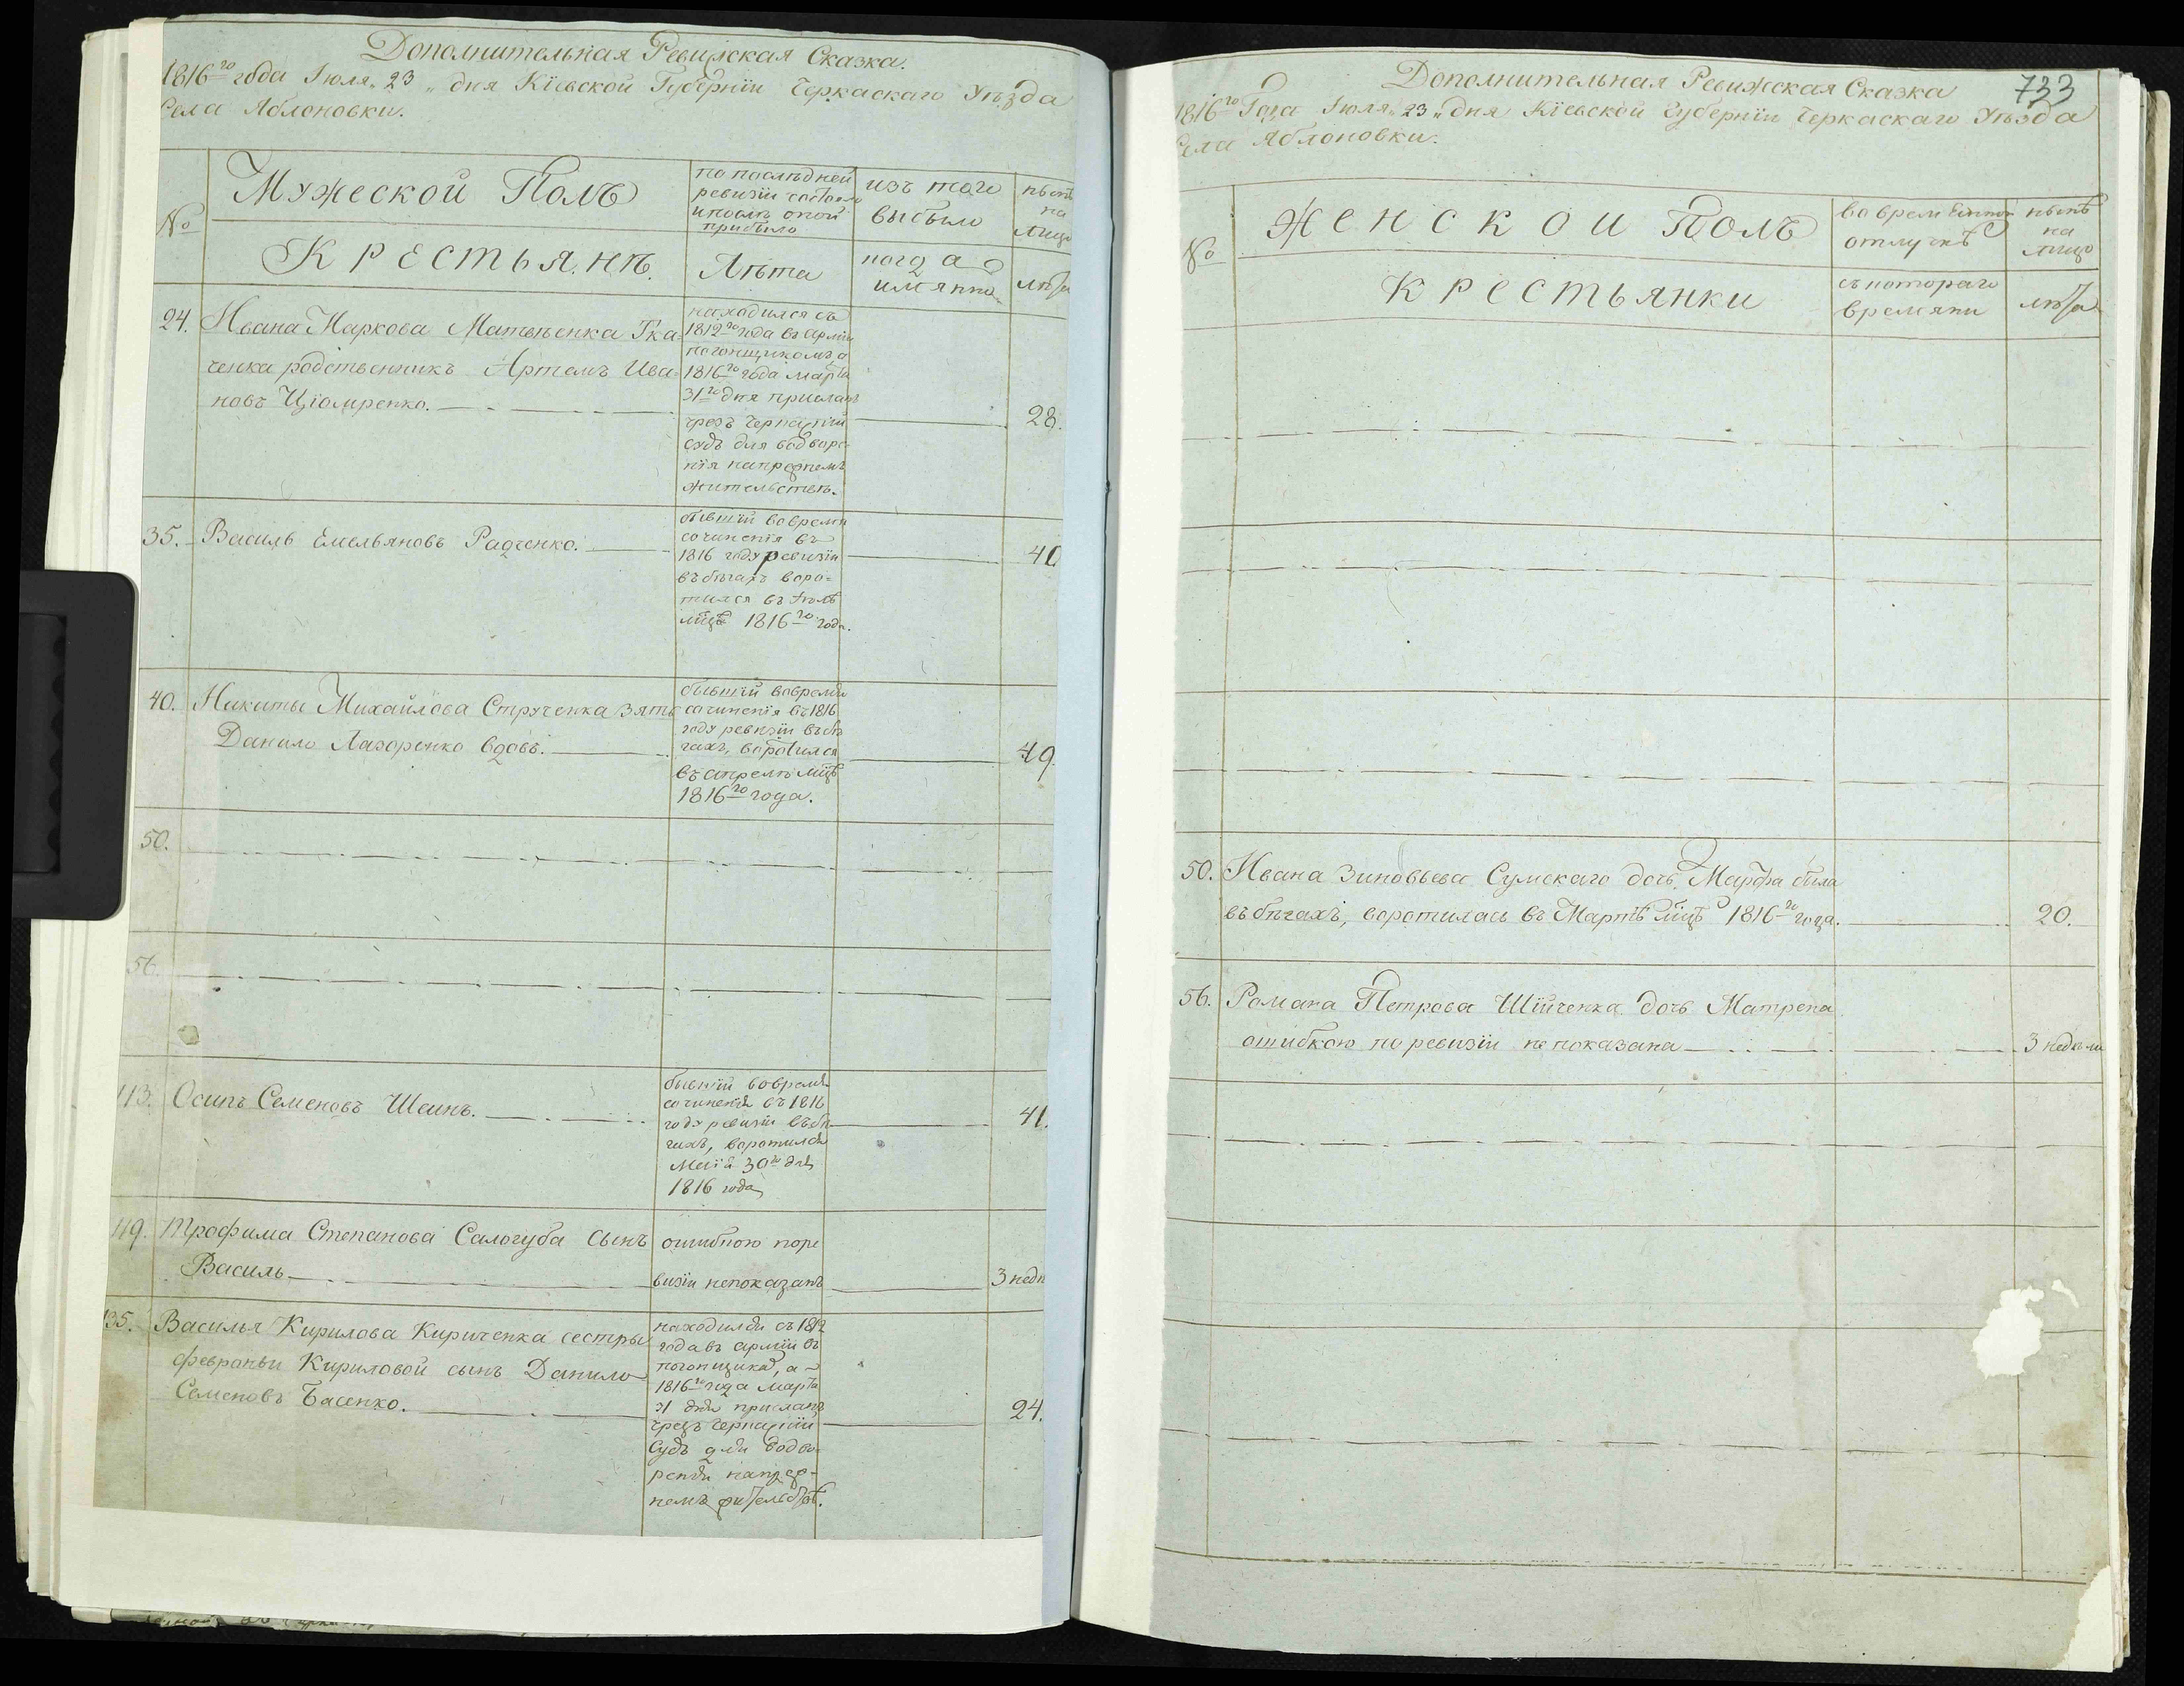 Дополнительная Ревижская Сказка.
1816го года Іюля „23„ дня Кіевской Губерніи Черкаскаго Уѣзда
Села Яблоновки.
№
Мужеской Полъ
Крестьянѣ.
по послѣдней
ревизіи состояло
и послѣ оной
прибыло
Лѣта
изъ того
выбыло
когда
имянно
нынѣ
на
лицо
лѣта
24. Ивана Маркова Матвѣенка Тка-
ченка родственникъ Артемъ Ива-
новъ Цюмренко.
находился съ
1812го года въ арміи
погонщикомъ а
1816го года марта
31го дня присланъ
чрезъ Черкаскій
судъ для водворе-
нія на прежнемъ
жительствѣ.
28.
35. Василь Емельяновъ Радченко.
бывшій во время
сочиненія въ
1816 году ревизіи
въ бѣгахъ воро-
тился въ Іюлѣ
мцѣ 1816го года.
40
40. Никиты Михайлова Струченка зять
Данило Лазоренко вдовъ.
бывшій во время
сочиненія въ 1816
году ревизіи въ бѣ
гахъ, воротился
въ апрелѣ мцѣ
1816го года.
49
50.
56.
113. Осипъ Семеновъ Шеинъ.
бывшій во время
сочиненія въ 1816
году ревизіи въ бѣ
гахъ, воротился
Маія 30го дня
1816 года
41.
119. Трофима Степанова Салогуба сынъ
Василь
ошибкою по ре
визіи непоказанъ
3 недѣ
135. Василья Кирилова Кириченка сестры
Февраньи Кириловой сынъ Данило
Семеновъ Басенко.
находился съ 1812
года въ арміи въ
погонщикахъ, а
1816го года марта
31 дня присланъ
чрезъ Черкаскій
Судъ для водво-
ренія на преж-
немъ жительствѣ.
24.
733
Дополнительная Ревижская Сказка
1816го Года Іюля „23„ дня Кіевской Губерніи Черкаскаго Уѣзда
Села Яблоновки.
№
Женской Полъ
Крестьянки
во временной
отлучкѣ
съ котораго
времяни
нынѣ
на
лицо
лѣта
50. Ивана Зиновьева Сумскаго дочь Марфа была
въ бѣгахъ, воротилась въ Мартѣ мцѣ 1816го года.
20.
56. Романа Петрова Шійченка дочь Матрена
ошибкою по ревизіи не показана
3 недѣли